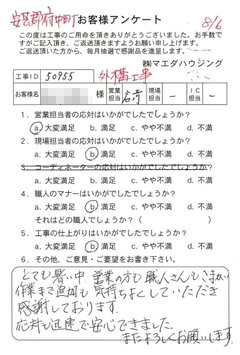 安芸郡府中町 お客様アンケート 8/6
この度は工事のご用命を頂きありがとうございました。お手数で
すがご記入頂き、ご返送頂きますようお願い申し上げます。
ご返送頂いた方から、毎月抽選で感謝品を進呈します。
㈱マエダハウジング
工事ID 50955 外構工事
お客様名 様 営業担当 現場担当 IC
1. 営業担当者の対応はいかがでしたでしょうか?
a)大変満足 b. 満足 c. やや不満 d. 不満
2. 現場担当者の対応はいかがでしたでしょうか?
a. 大変満足 b)満足 c. やや不満 d. 不満
3. コーディネーターの対応はいかがでしたでしょうか?
a. 大変満足 b. 満足 c. やや不満 d. 不満
4. 職人のマナーはいかがでしたでしょうか?
a. 大変満足 b)満足 c. やや不満 d. 不満
それはどの職人でしょうか?( )
5. 工事の仕上がりはいかがでしたでしょうか?
a)大変満足 b. 満足 c. やや不満 d. 不満
6. その他、ご意見・ご要望をお書き下さい。
とても暑い中 営業の方も 職人さんも
作業も 気持ちよくしていただき
感謝しております。
応対も迅速で安心できました。
またよろしくお願いします